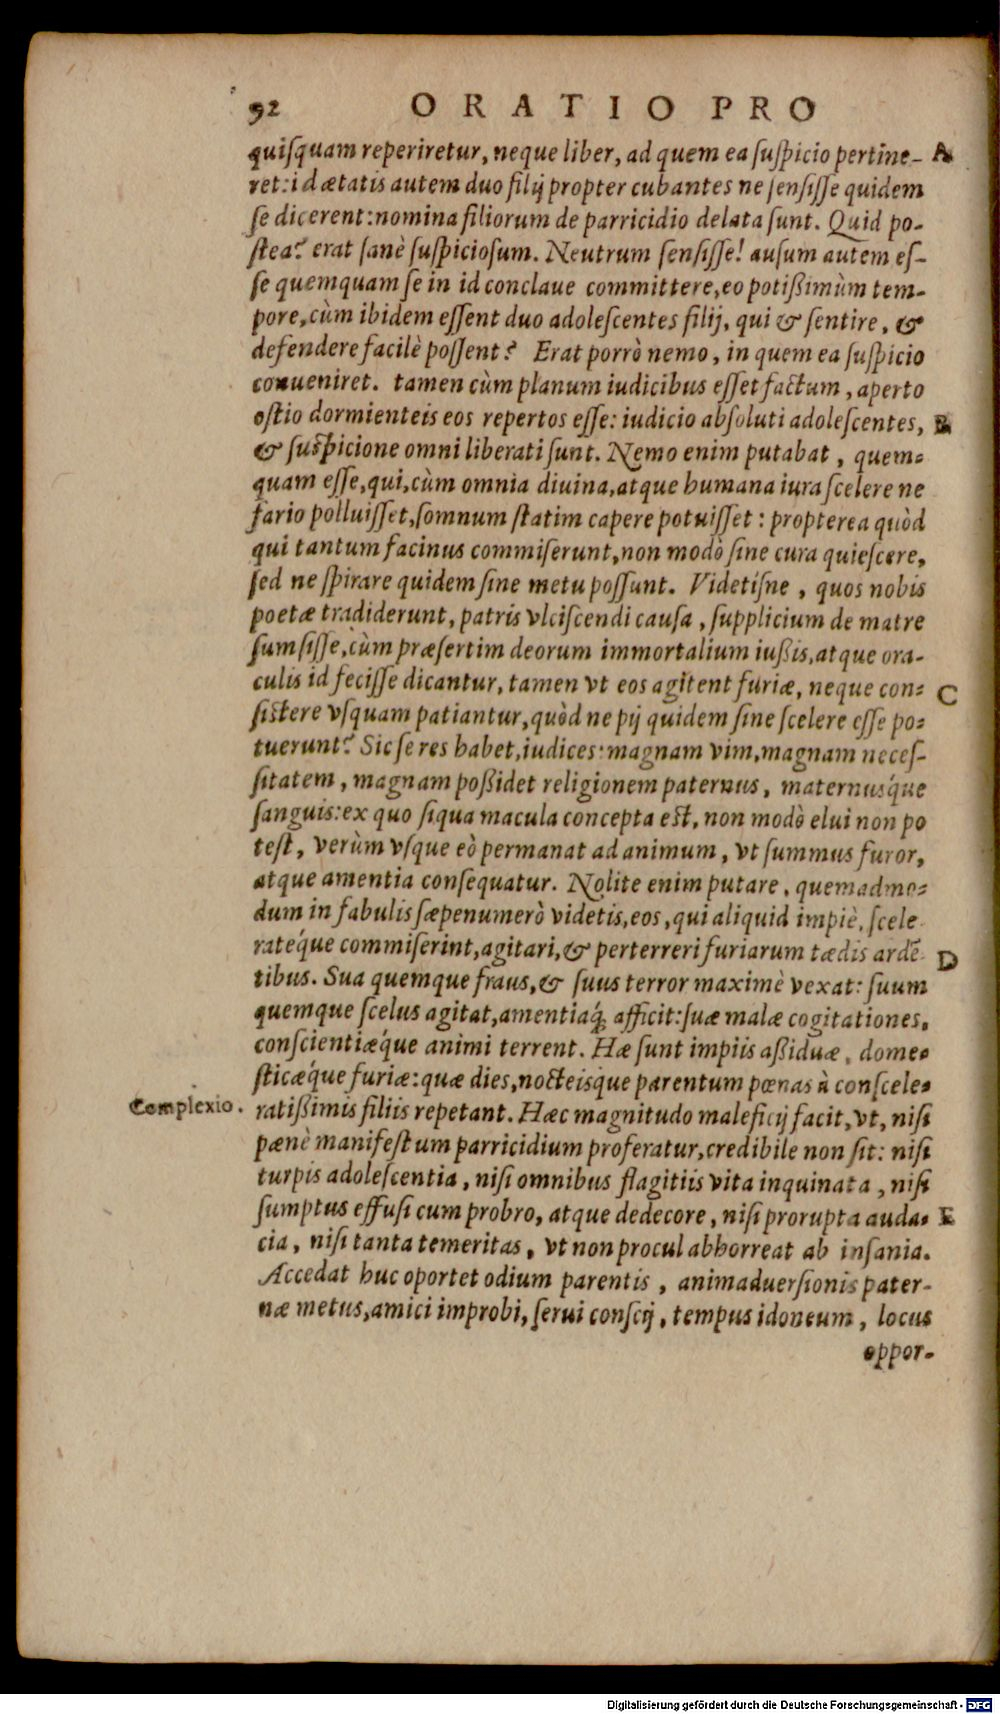 92 ORATIO PRO
quiſquam reperiretur, neque liber, ad quem ea ſuſpicio pertine- A
ret: id ætatis autem duo filij propter cubantes ne ſenſiſſe quidem
ſe dicerent: nomina filiorum de parricidio delata ſunt. Quid po-
ſtea? erat ſanè ſuſpicioſum. Neutrum ſenſiſſe! auſum autem eſ-
ſe quemquam ſe in id conclaue committere, eo potißimùm tem-
pore, cùm ibidem eſſent duo adoleſcentes filij, qui & ſentire, &
defendere facilè poſſent? Erat porrò nemo, in quem ea ſuſpicio
conueniret. tamen cùm planum iudicibus eſſet factum, aperto
oſtio dormienteis eos repertos eſſe: iudicio abſoluti adoleſcentes, B
& ſuſpicione omni liberati ſunt. Nemo enim putabat, quem-
quam eſſe, qui, cùm omnia diuina, atque humana iura ſcelere ne
fario polluiſſet, ſomnum ſtatim capere potuiſſet: propterea quòd
qui tantum facinus commiſerunt, non modò ſine cura quieſcere,
ſed ne ſpirare quidem ſine metu poſſunt. Videtiſne, quos nobis
poetæ tradiderunt, patris vlciſcendi cauſa, ſupplicium de matre
ſumſiſſe, cùm præſertim deorum immortalium iußis, atque ora-
culis id feciſſe dicantur, tamen vt eos agitent furiæ, neque con- C
ſiſtere vſquam patiantur, quòd ne pij quidem ſine ſcelere eſſe po-
tuerunt? Sic ſe res habet, iudices: magnam vim, magnam neceſ-
ſitatem, magnam poßidet religionem paternus, maternusq́ue
ſanguis: ex quo ſiqua macula concepta eſt, non modò elui non po
teſt, verùm vſque eò permanat ad animum, vt ſummus furor,
atque amentia conſequatur. Nolite enim putare, quemadmo-
dum in fabulis ſæpenumerò videtis, eos, qui aliquid impiè, ſcele
rateq́ue commiſerint, agitari, & perterreri furiarum tædis ardē- D
tibus. Sua quemque fraus, & ſuus terror maximè vexat: ſuum
quemque ſcelus agitat, amentiaq́; afficit: ſuæ malæ cogitationes,
conſcientiæq́ue animi terrent. Hæ ſunt impiis aßiduæ, dome-
ſticæq́ue furiæ: quæ dies, nocteisque parentum pœnas à conſcele-
Complexio. ratißimis filiis repetant. Hæc magnitudo maleficij facit, vt, niſi
pænè manifeſtum parricidium proferatur, credibile non ſit: niſi
turpis adoleſcentia, niſi omnibus flagitiis vita inquinata, niſi
ſumptus effuſi cum probro, atque dedecore, niſi prorupta auda- E
cia, niſi tanta temeritas, vt non procul abhorreat ab inſania.
Accedat huc oportet odium parentis, animaduerſionis pater-
næ metus, amici improbi, ſerui conſcij, tempus idoneum, locus
oppor-
Digitalisierung gefördert durch die Deutsche Forschungsgemeinschaft - DFG